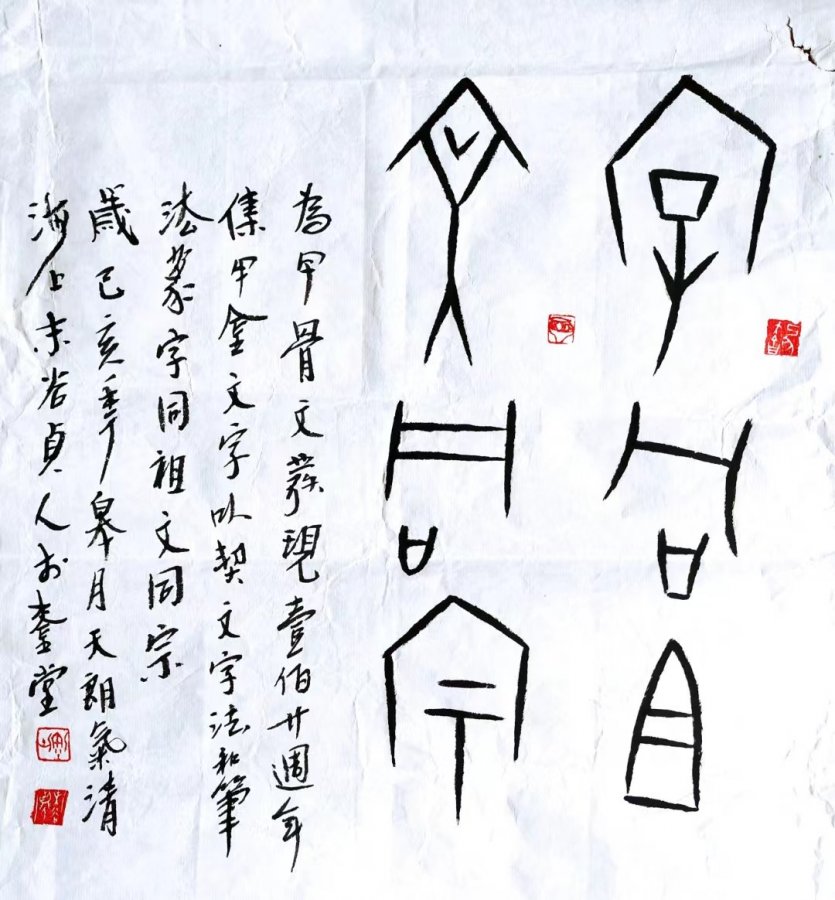 字同且
文同宗
為甲骨文發現壹伯廿週年
集甲金文字以契文字法和筆
法篆字同祖文同宗
歲己亥年皋月天朗氣清
海上未谷貞人於堂